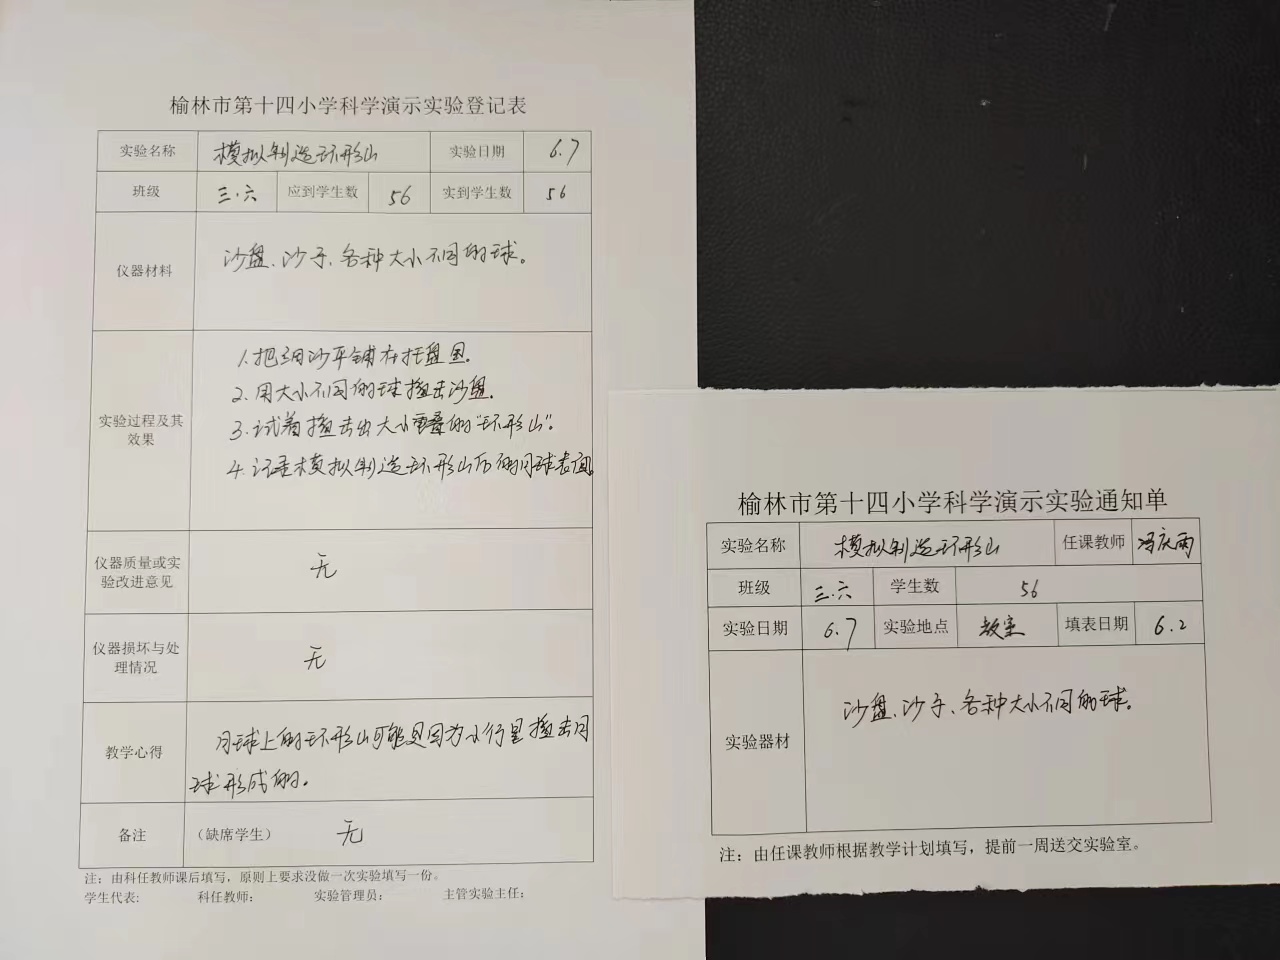 榆林市第十四小学科学演示实验登记表
实验名称 模拟制造环形山 实验日期 6.7
班级 三.六 应到学生数 56 实到学生数 56
仪器材料 沙盘、沙子、各种大小不同的球。
实验过程及其效果
1.把细沙平铺在托盘里.
2.用大小不同的球撞击沙盘.
3.试着撞击出大小重叠的"环形山".
4.记录模拟制造环形山后的月球表面
仪器质量或实验改进意见 无
仪器损坏与处理情况 无
教学心得 月球上的环形山可能是因为小行星撞击月
球形成的。
备注 (缺席学生) 无
注：由科任教师课后填写，原则上要求没做一次实验填写一份。
学生代表: 科任教师: 实验管理员: 主管实验主任:
榆林市第十四小学科学演示实验通知单
实验名称 模拟制造环形山 任课教师 冯庆雨
班级 三.六 学生数 56
实验日期 6.7 实验地点 教室 填表日期 6.2
实验器材 沙盘、沙子、各种大小不同的球。
注：由任课教师根据教学计划填写，提前一周送交实验室。